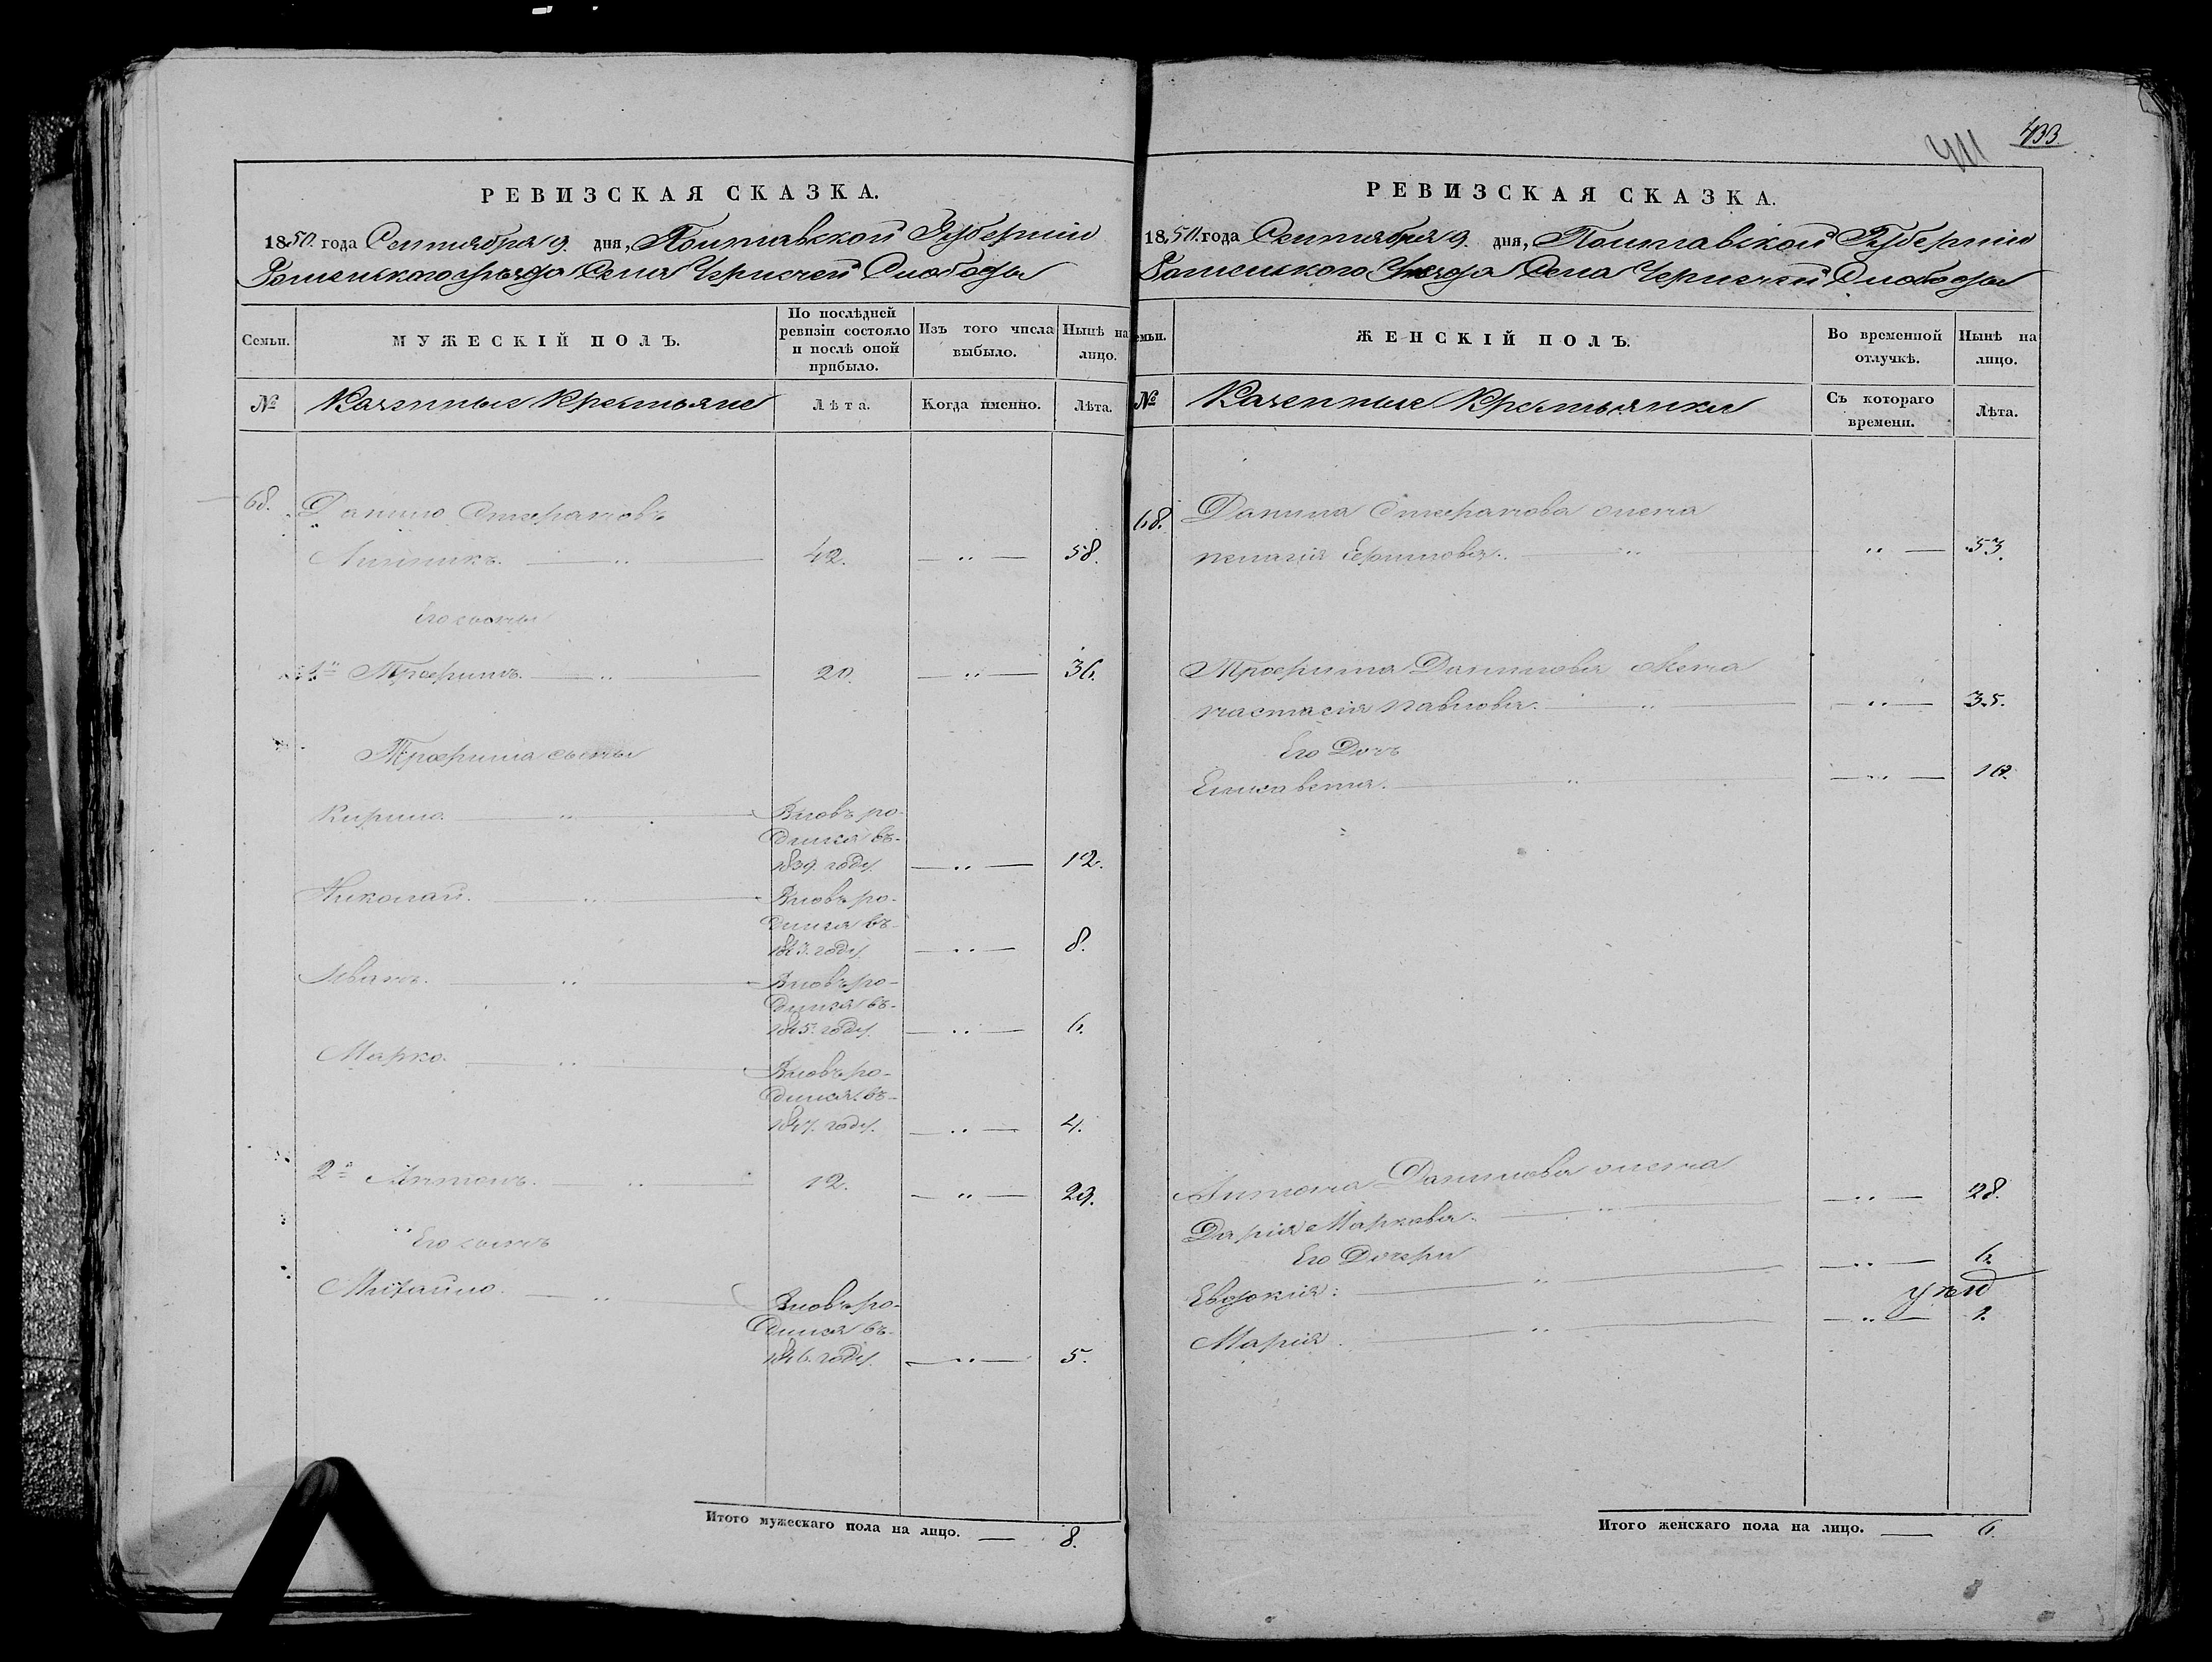 433
411
РЕВИЗСКАЯ СКАЗКА.
1850. года Сентября 9. дня, Полтавской Губерніи
Роменского уѣзда Села Чернечей Слободы
Семьи.
МУЖЕСКІЙ ПОЛЪ.
По послѣдней ревизіи состояло и послѣ оной прибыло.
Изъ того числа выбыло.
Нынѣ на лицо.
№
Казенные Крестьяне
Лѣта.
Когда именно.
Лѣта.
68. Данило Стефановъ
42. 58.
Его сыны
1й Трофимъ. 20. 36.
Трофима сыны
Кирило. Вновь ро-
дился въ
1839. году. 12.
Николай. Вновь ро-
дился въ
1843. году. 8.
Иванъ. Вновь ро-
дился въ
1845. году. 6.
Марко. Вновь ро-
дился въ
1847. году. 4.
2й Антонъ. 12. 29.
Его сынъ
Михайло. Вновь ро-
дился въ
1846. году. 5.
Итого мужескаго пола на лицо. 8.
РЕВИЗСКАЯ СКАЗКА.
1850. года Сентября 9. дня, Полтавской Губерніи
Роменского Уѣзда Села Чернечей Слободы
Семьи.
ЖЕНСКІЙ ПОЛЪ.
Во временной отлучкѣ.
Нынѣ на лицо.
№
Казенные Крестьянки
Съ котораго времени.
Лѣта.
68. Данила Стефанова жена
Пелагія Ефимова. 53.
Трофима Данилова жена
Настасія Павлова. 35.
Его Дочь
Елисавета. 10.
Антона Данилова жена
Дарія Маркова. 28.
Его Дочери
Евдокия: 6.
Марія. 2.
Итого женскаго пола на лицо. 6.